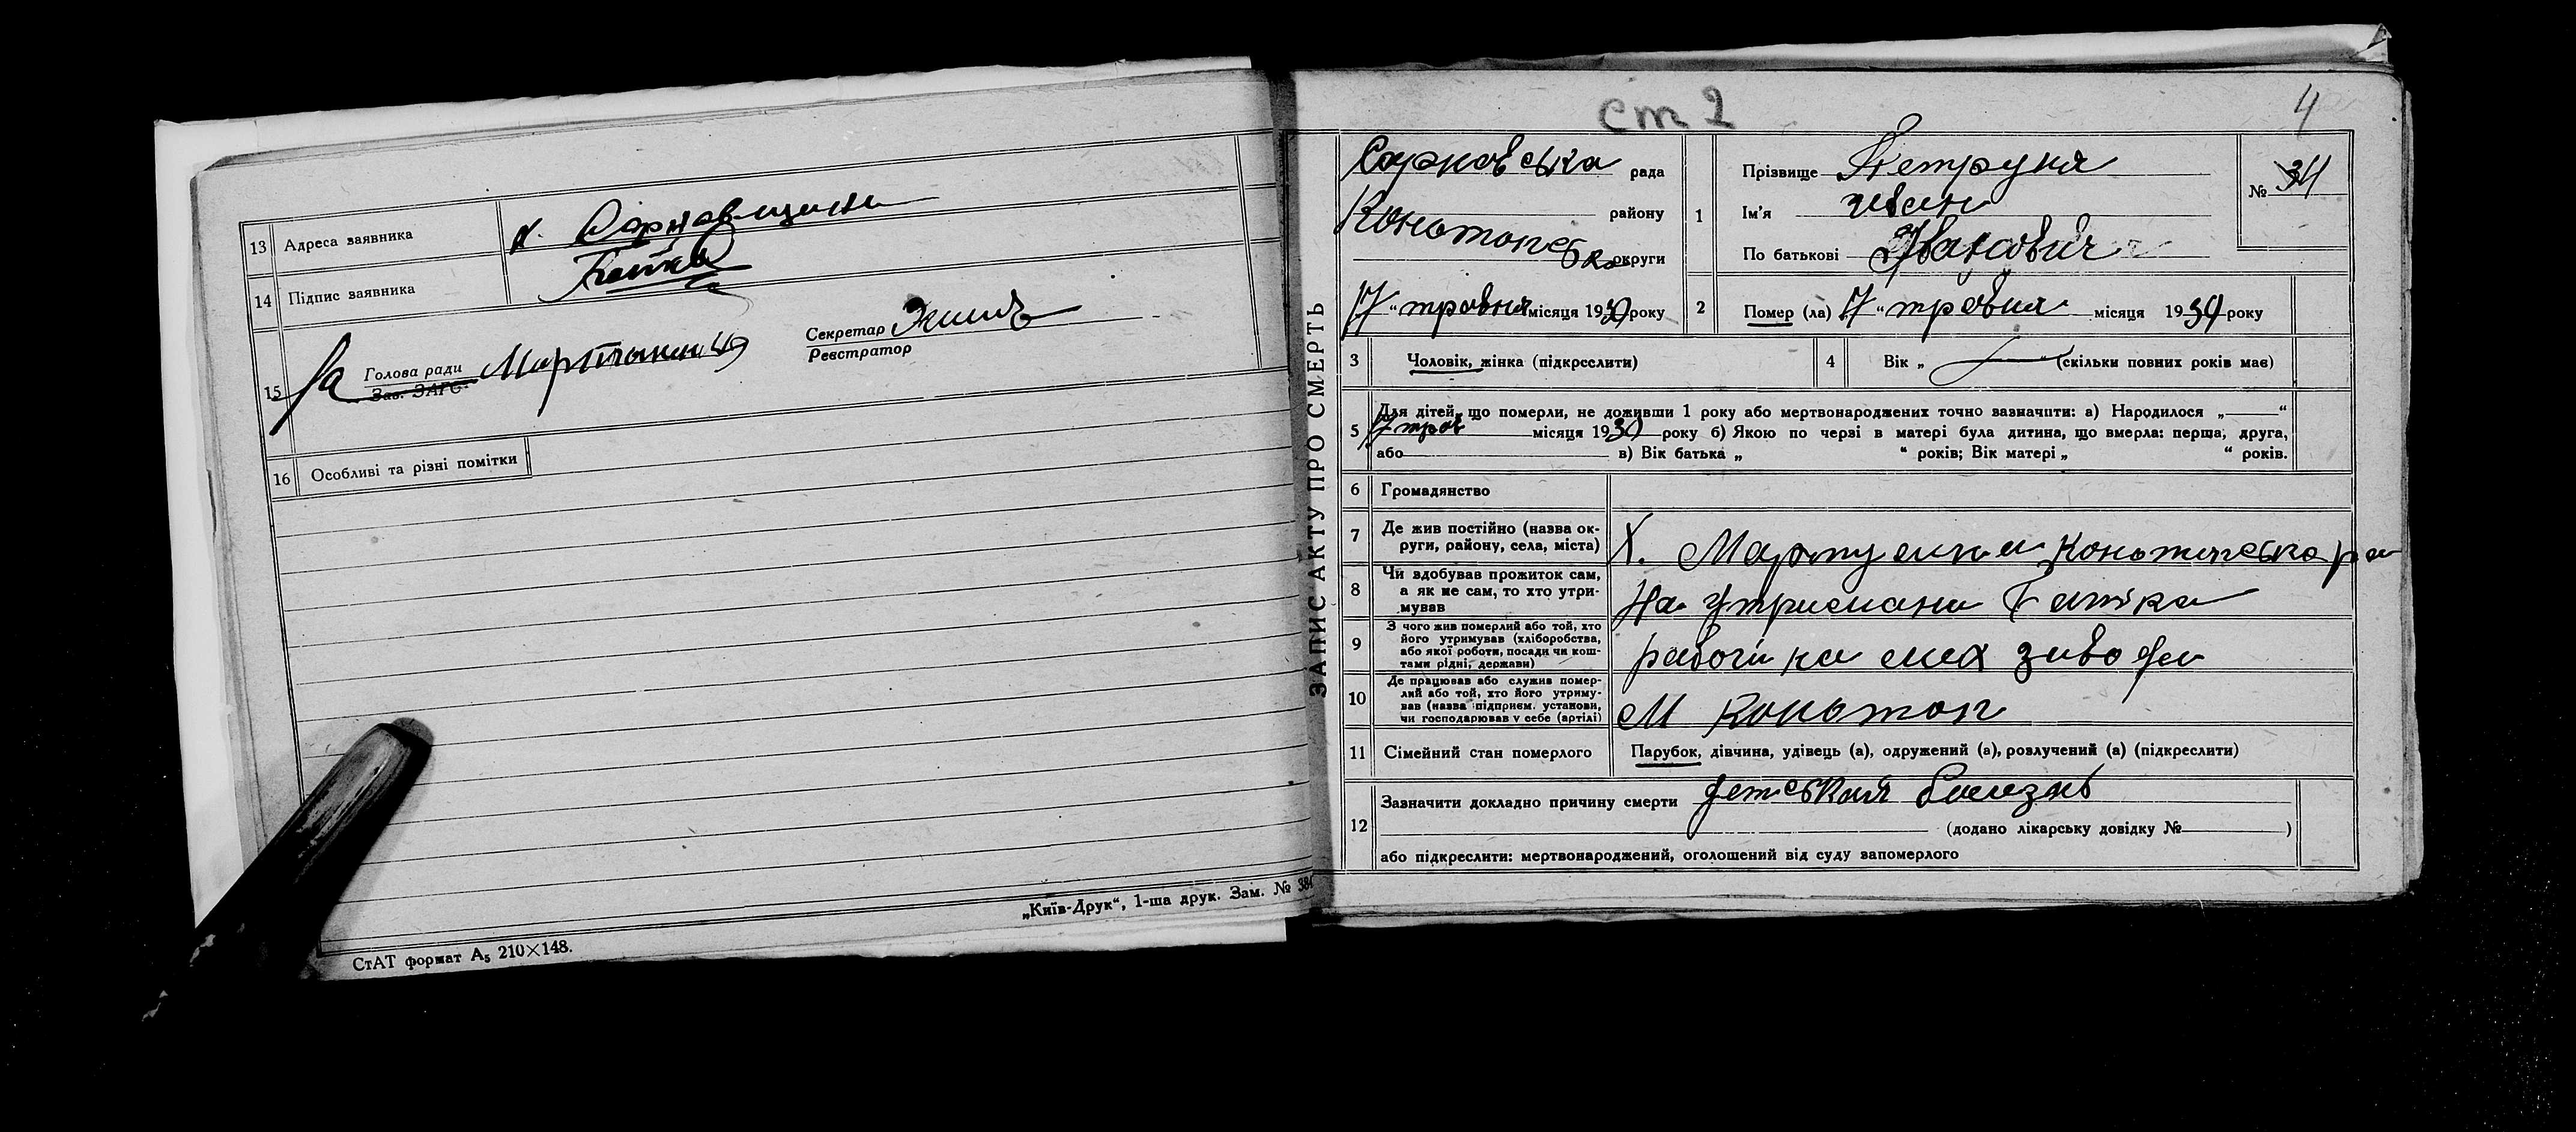 13 Адреса заявника х. Сарнавщина
14 Підпис заявника
15 За Голова ради Мартынен Секретар
Зав. ЗАГС Реєстратор
16 Особливі та різні помітки
„Київ-Друк“, 1-ша друк. Зам. № 384
СтАТ формат А5 210×148.
ст 2
4
ЗАПИС АКТУ ПРО СМЕРТЬ
рада
Конотопська району
округи
17 “ травня місяця 1930 року
1 Прізвище Петруня
Ім’я Иван
По батькові Іванович
№ 34
2 Помер (ла) 17 “ травня місяця 1930 року
3 Чоловік, жінка (підкреслити)
4 Вік „ “ (скільки повних років мав)
5 Для дітей, що померли, не доживши 1 року або мертвонароджених точно зазначити: а) Народилося „ “
17 трав місяця 1930 року б) Якою по черзі в матері була дитина, що вмерла: перша, друга,
або в) Вік батька „ “ років; Вік матері „ “ років.
6 Громадянство
7 Де жив постійно (назва ок-
руги, району, села, міста) Х. Конотопська ра
8 Чи вдобував прожиток сам,
а як не сам, то хто утри-
мував На утримани Батька
9 З чого жив померлий або той, хто
його утримував (хліборобства,
або якої роботи, посади чи кош-
тами рідні, держави) рабочи на мех заводи
10 Де працював або служив помер-
лий або той, хто його утриму-
вав (назва підприєм. установи,
чи господарював у себе (артілі) М Конотоп
11 Сімейний стан померлого Парубок, дівчина, удівець (а), одружений (а), розлучений (а) (підкреслити)
12 Зазначити докладно причину смерти детьская болезнь
(додано лікарську довідку № )
або підкреслити: мертвонароджений, оголошений від суду запомерлого